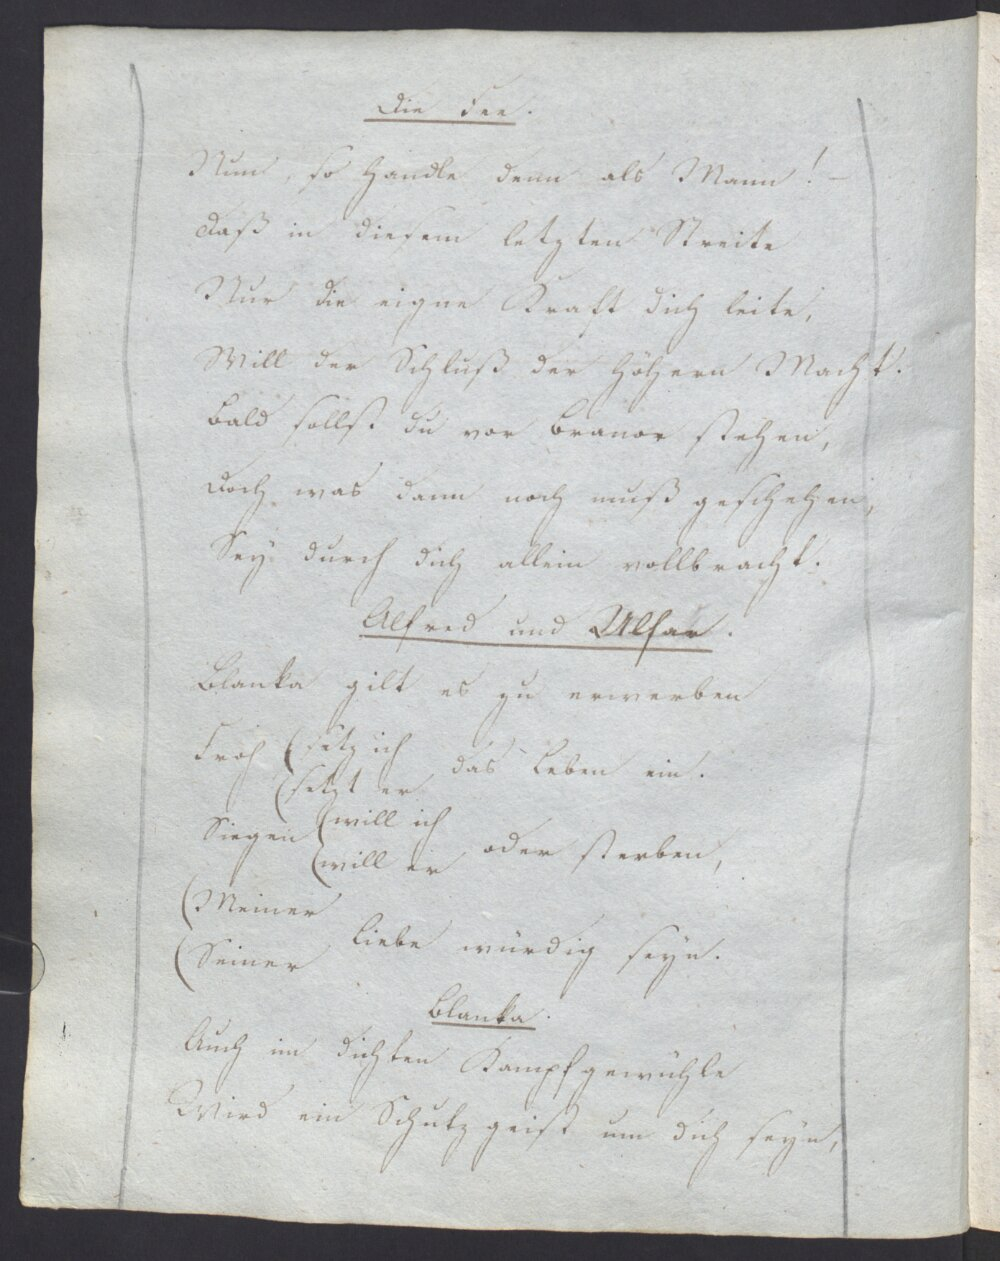 Die Fee.
Nun, so handle denn als Mann! –
Daß in diesem letzten Streite
Nur die eigne Kraft dich leite,
Will der Schluß der höhern Macht.
Bald sollst du vor Branor stehen,
Doch was dann noch muß geschehen,
Sey durch dich allein vollbracht.
Alfred und Ulfar.
Blanka gilt es zu erwerben
Froh (setz ich
(setzt er das Leben ein.
Siegen (will ich
(will er oder sterben,
(Meiner
(Seiner Liebe würdig seyn.
Blanka.
Auch im dichten Kampfgewühle
Wird ein Schutzgeist um dich seyn,